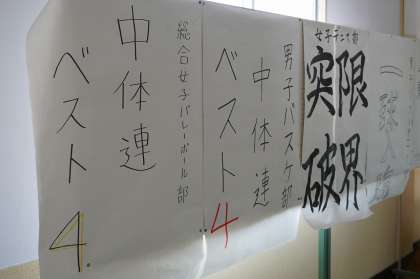 総合女子バレーボール部
中体連
ベスト4.
男子バスケ部
中体連
ベスト4
女子テニス部
限界
突破